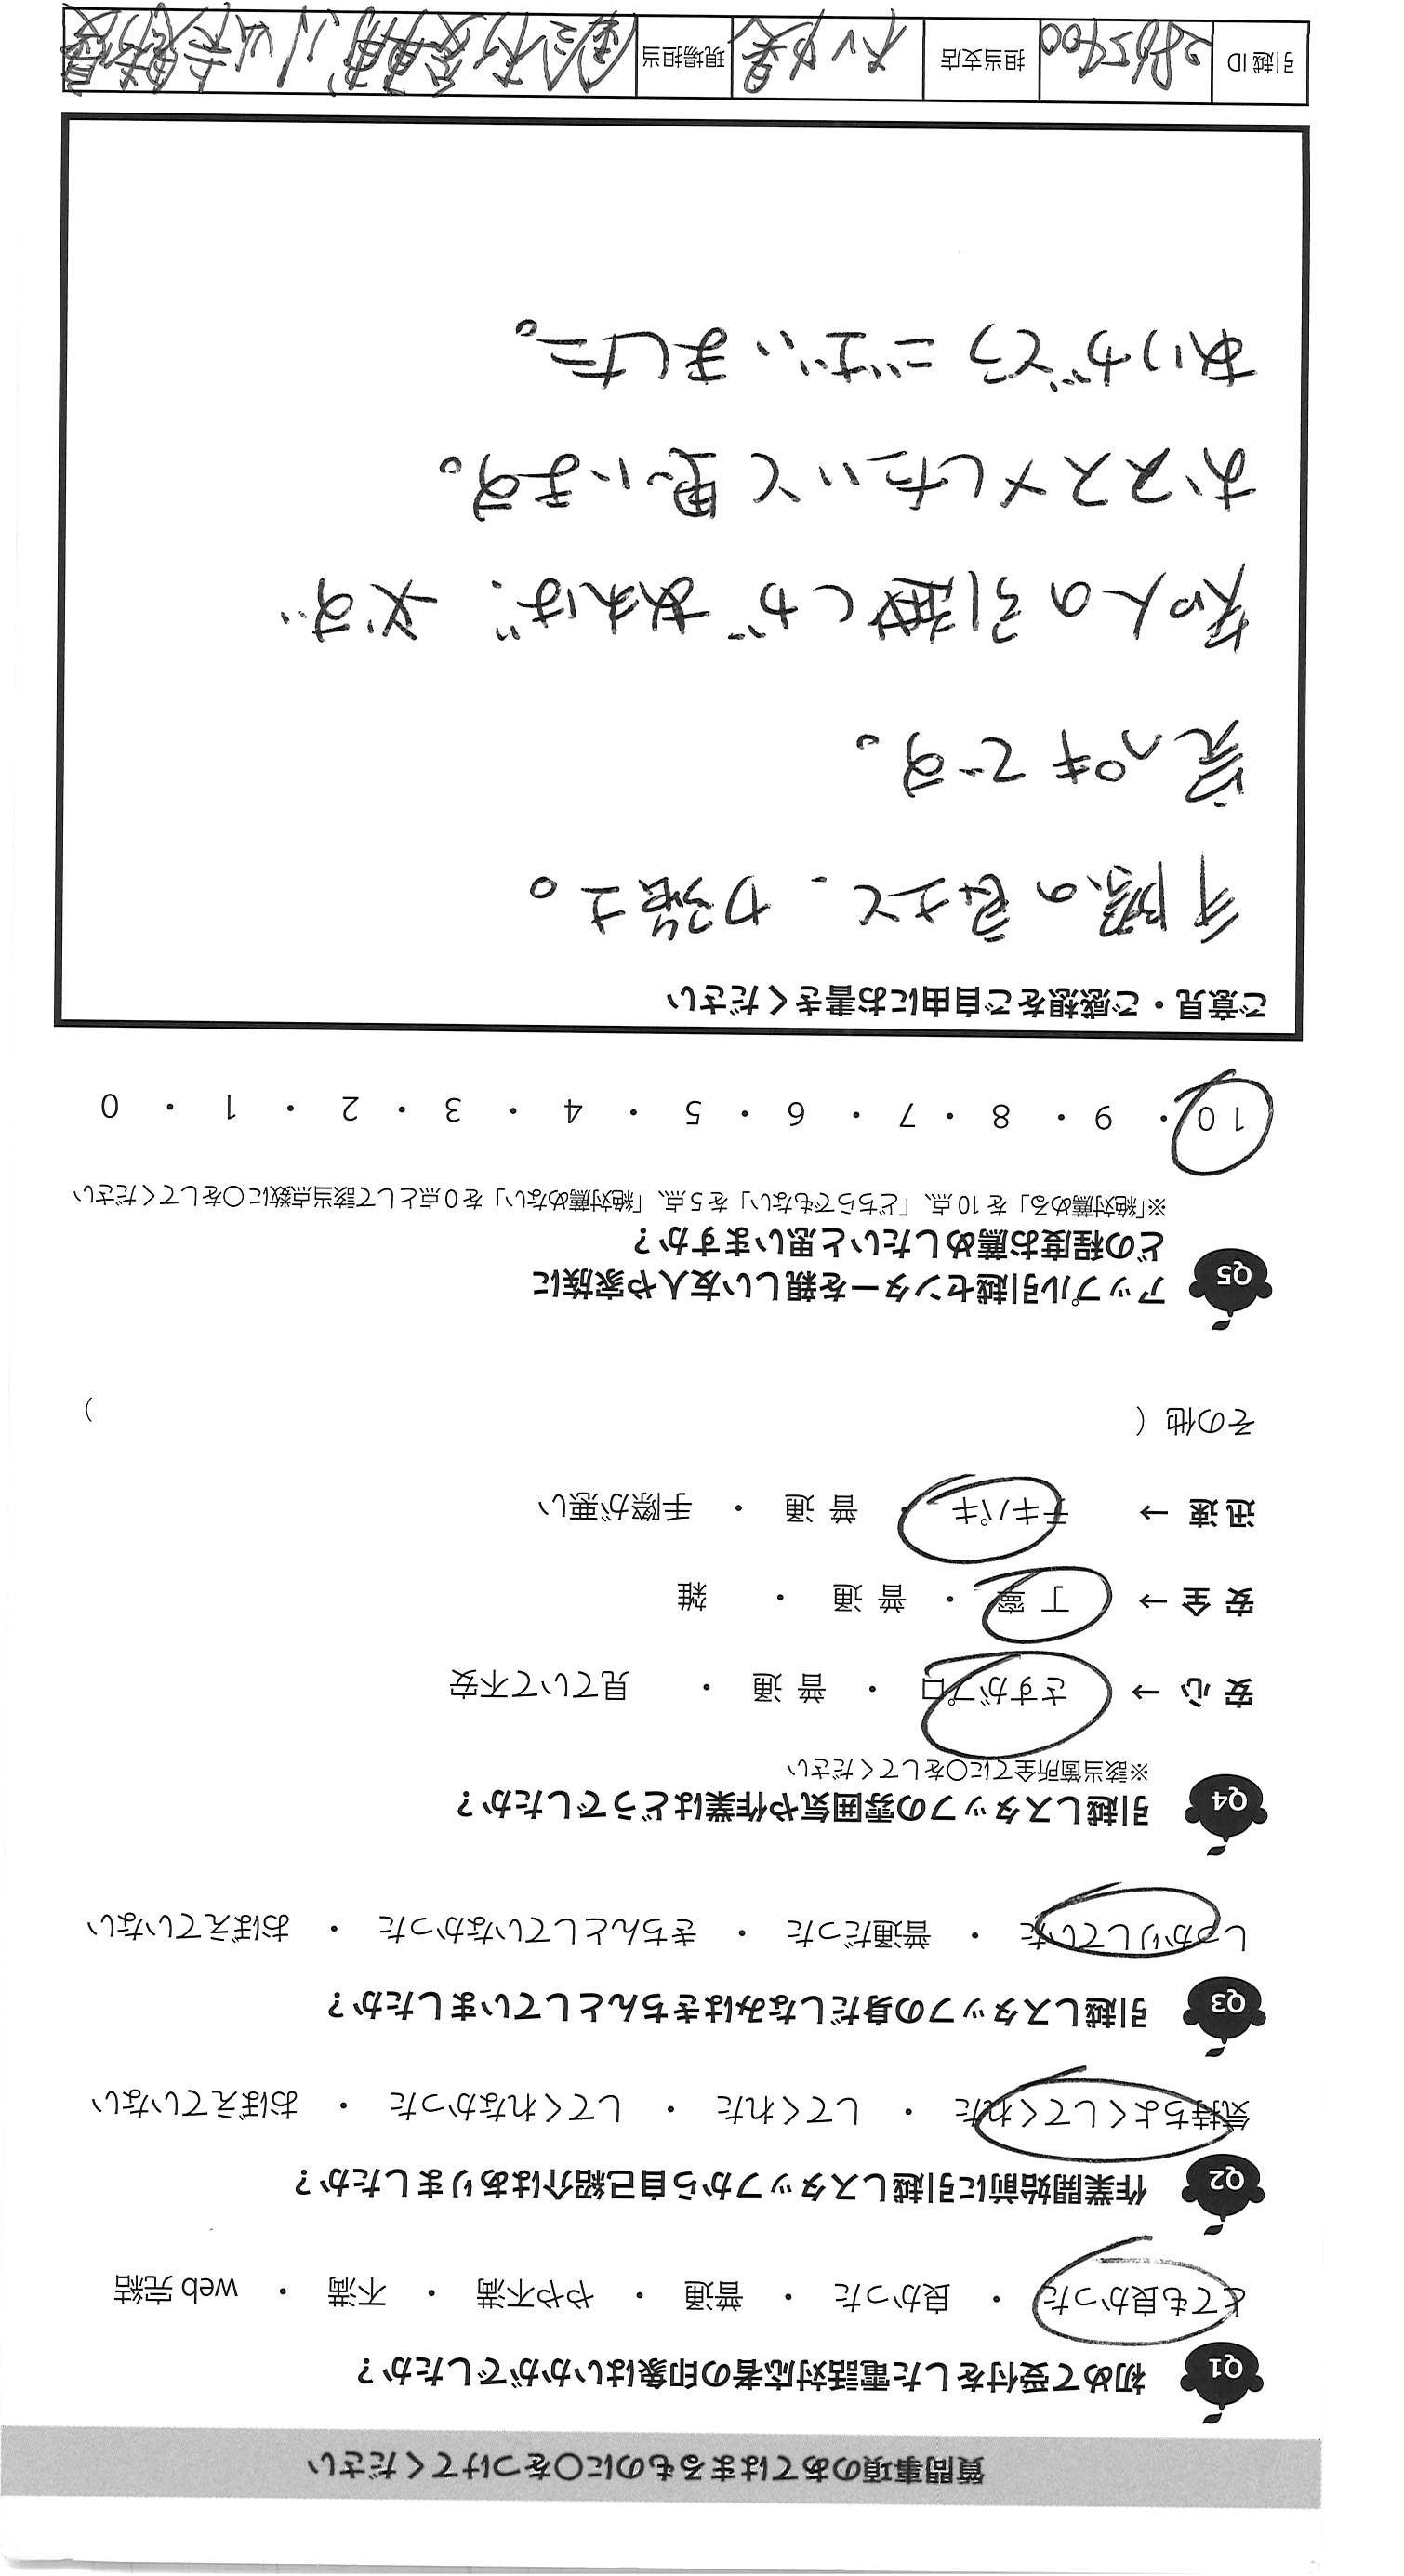 質問事項のあてはまるものに○をつけてください
Q1 初めて受付をした電話対応者の印象はいかがでしたか？
とても良かった ・ 良かった ・ 普通 ・ やや不満 ・ 不満 ・ web 完結
Q2 作業開始前に引越しスタッフから自己紹介はありましたか？
気持ちよくしてくれた ・ してくれた ・ してくれなかった ・ おぼえていない
Q3 引越しスタッフの身だしなみはきちんとしていましたか？
しっかりしていた ・ 普通だった ・ きちんとしていなかった ・ おぼえていない
Q4 引越しスタッフの雰囲気や作業はどうでしたか？
※該当箇所全てに○をしてください
安 心 → さすがプロ ・ 普 通 ・ 見ていて不安
安 全 → 丁 寧 ・ 普 通 ・ 雑
迅 速 → テキパキ ・ 普 通 ・ 手際が悪い
その他（ ）
Q5 アップル引越センターを親しい友人や家族に
どの程度お薦めしたいと思いますか？
※「絶対薦める」を 10 点、「どちらでもない」を 5 点、「絶対薦めない」を 0 点として該当点数に○をしてください
10 ・ 9 ・ 8 ・ 7 ・ 6 ・ 5 ・ 4 ・ 3 ・ 2 ・ 1 ・ 0
ご意見・ご感想をご自由にお書きください
手際の良さと、力強さ。
完ペキです。
知人の引越しがあれば、必ず
おススメしたいと思います。
ありがとうございました。
引越 ID 2865400 担当支店 現場担当